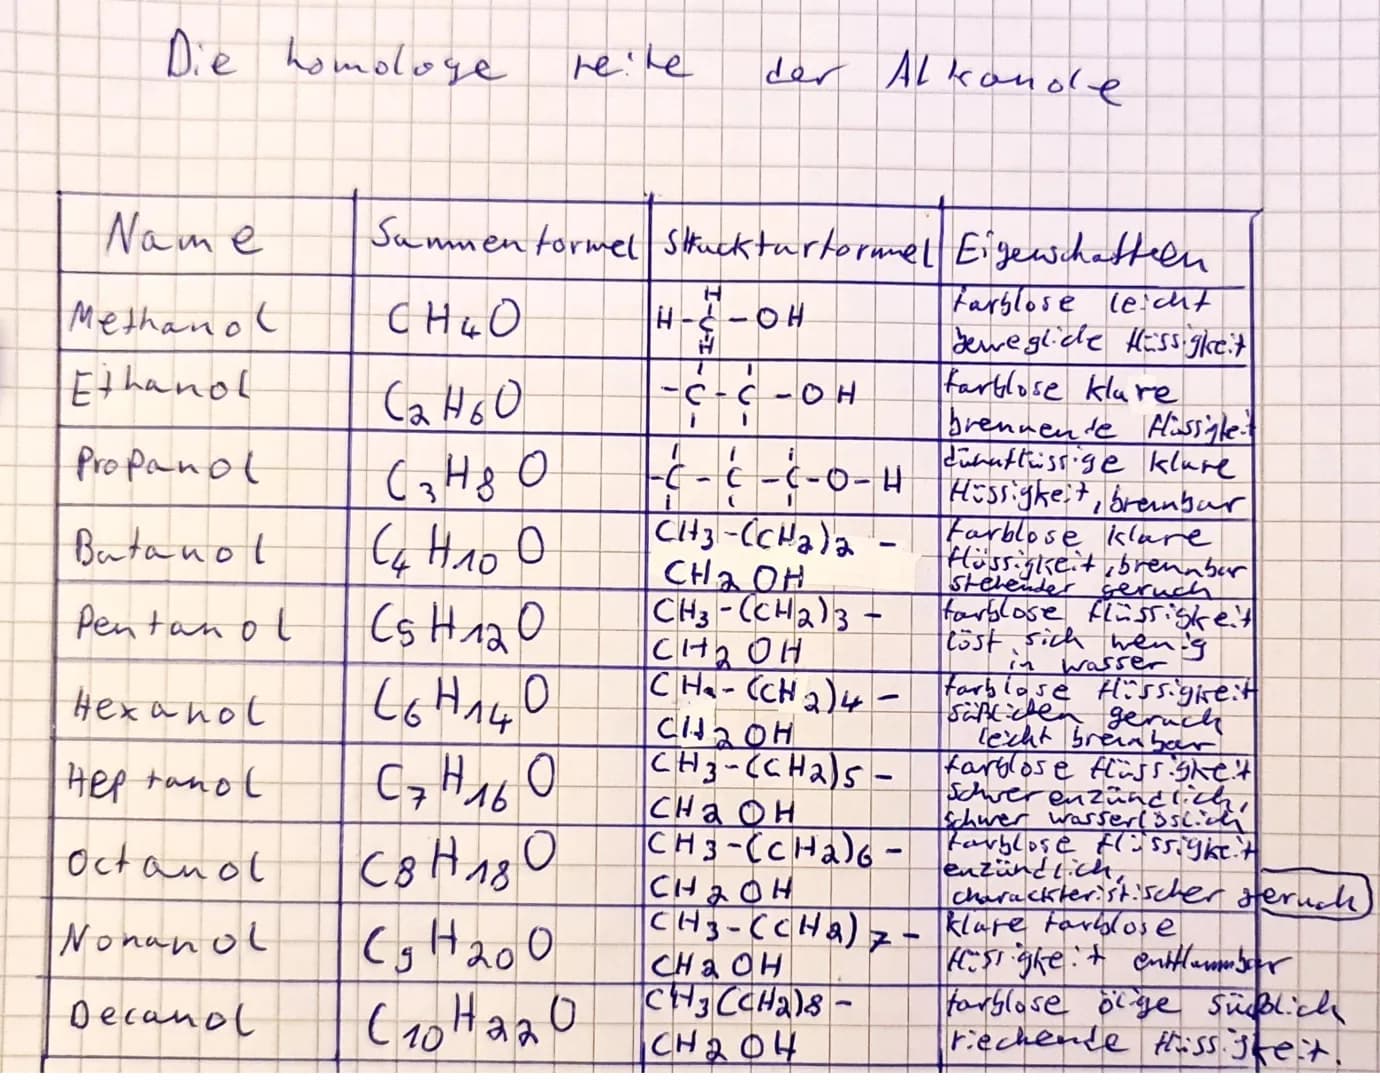 Die homologe reihe der Alkanole
Name Summenformel Strukturformel Eigenschaften
Methanol CH4O H-C-OH farblose leicht
H
H
bewegliche flüssigkeit
Ethanol C2H6O -C-C-OH farblose klare
brennende flüssigkeit
Propanol C3H8O -C-C-C-O-H dünnflüssige klare
flüssigkeit, brennbar
Butanol C4H10O CH3-(CH2)2- farblose klare
CH2OH flüssigkeit, brennbar
stechender geruch
Pentanol C5H12O CH3-(CH2)3- farblose flüssigkeit
CH2OH löst sich wenig
in wasser
Hexanol C6H14O CH3-(CH2)4- farblose flüssigkeit
CH2OH süßlichen geruch
leicht brennbar
Heptanol C7H16O CH3-(CH2)5- farblose flüssigkeit
CH2OH schwer enzündlich,
schwer wasserlöslich
Octanol C8H18O CH3-(CH2)6- farblose flüssigkeit
enzündlich,
CH2OH charackteristischer geruch
Nonanol C9H20O CH3-(CH2)7- klare farblose
CH2OH flüssigkeit entflammbar
Decanol C10H22O CH3(CH2)8- farblose ölige süßlich
CH2OH riechende flüssigkeit.